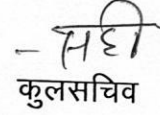 - सही
कुलसचिव